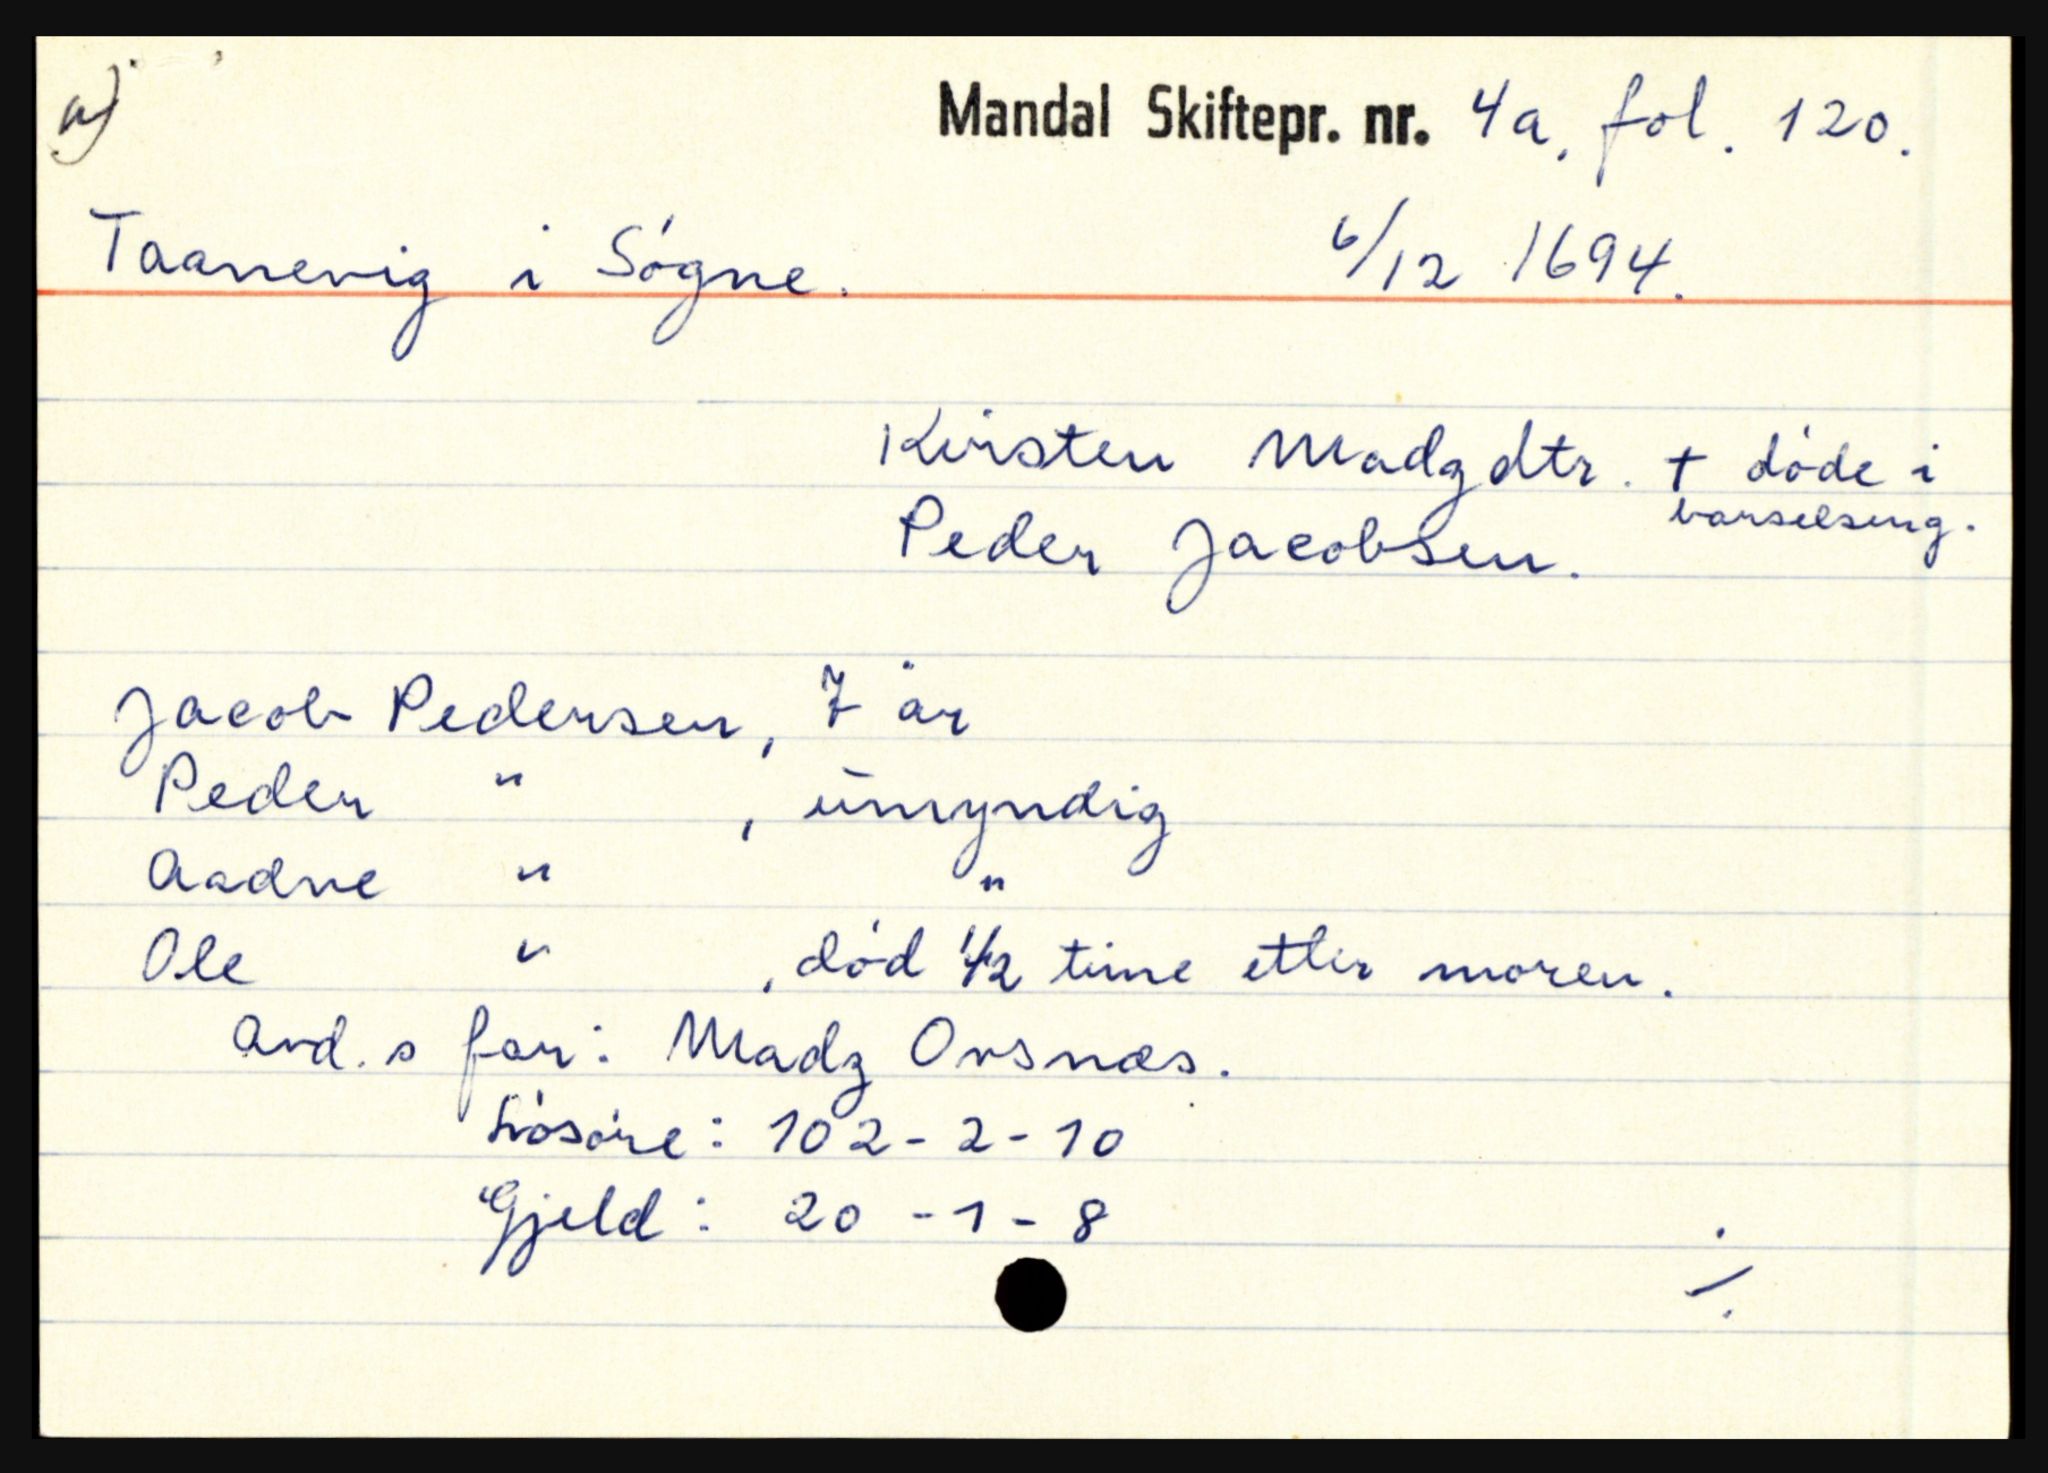 a)
Mandal Skiftepr. nr. 4a, fol. 120.
Taanevig i Søgne. 6/12 1694.
Kirsten Madzdtr. + døde i
barselseng.
Peder Jacobsen.
Jacob Pedersen, 7 år
Peder " , umyndig
Aadne " "
Ole " , død 1/2 time etter moren.
avd.s far: Madz Orsnæs.
Løsøre: 102-2-10
Gjeld: 20-1-8
./.